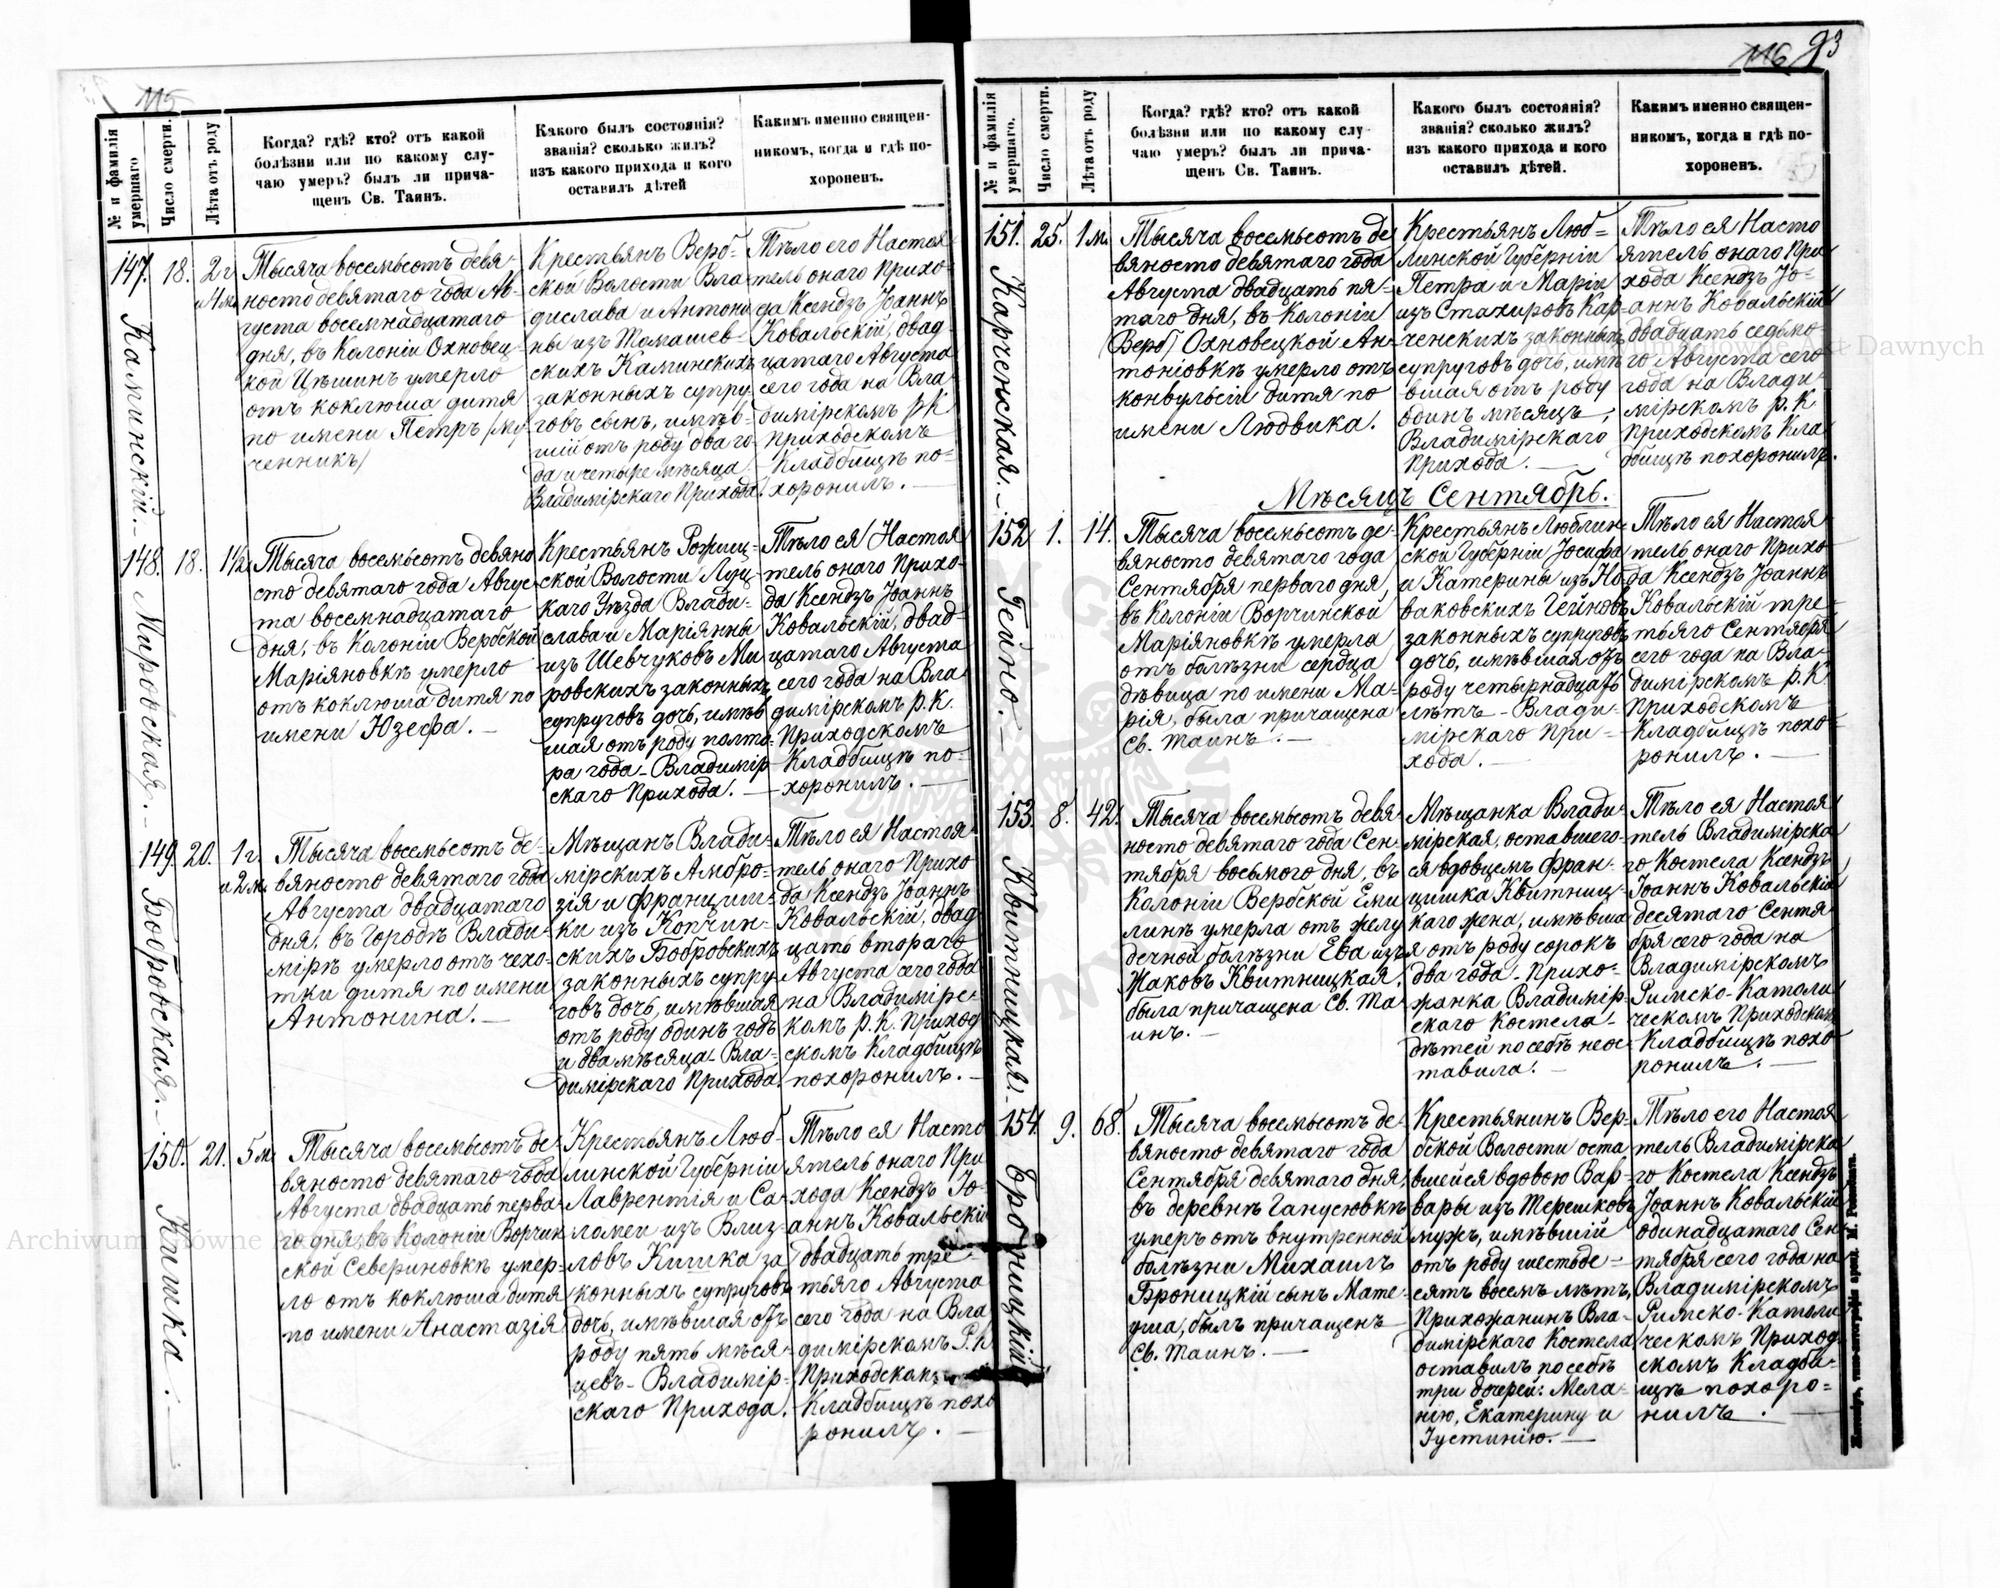 115
№ и фамилія умершаго
Число смерти.
Лѣта отъ роду
Когда? гдѣ? кто? отъ какой
болѣзни или по какому слу-
чаю умеръ? былъ ли прича-
щенъ Св. Таинъ.
Какого былъ состоянія?
званія? сколько жилъ?
изъ какого прихода и кого
оставилъ дѣтей
Какимъ именно священ-
никомъ, когда и гдѣ по-
хороненъ.
147. 18. 2 г. и 4 м.
Каминскій.
Тысяча восемьсотъ девя-
носто девятаго года Ав-
густа восемнадцатаго
дня, въ Колоніи Охновец-
кой Цѣшинъ умерло
отъ коклюша дитя
по имени Петръ /Му
ченникъ/
Крестьянъ Верб-
ской Волости Вла-
дислава и Антони
ны изъ Томашев-
скихъ Каминскихъ
законныхъ супру-
говъ сынъ, имѣв-
шій отъ роду два го
да и четыре мѣсяца.
Владимірскаго Прихода.
Тѣло его Настоя
тель онаго Прихо-
да Ксендзъ Іоаннъ
Ковальскій, двад-
цатаго Августа
сего года на Вла-
димірскомъ р.К.
Приходскомъ
Кладбищѣ по-
хоронилъ.
148. 18. 1½
Мировская.
Тысяча восемьсотъ девяно
сто девятаго года Авгус-
та восемнадцатаго
дня, въ Колоніи Вербской
Маріяновкѣ умерло
отъ коклюша дитя по
имени Юзефа.
Крестьянъ Рожищ-
ской Волости Луц-
каго Уѣзда Влади-
слава и Маріянны
изъ Шевчуковъ Ми
ровскихъ законныхъ
супруговъ дочь, имѣв
шая отъ роду полто-
ра года - Владимір-
скаго Прихода.
Тѣло ея Настоя
тель онаго Прихо-
да Ксендзъ Іоаннъ
Ковальскій, двад-
цатаго Августа
сего года на Вла-
димірскомъ р.К.
Приходскомъ
Кладбищѣ по-
хоронилъ.
149. 20. 1 г. и 2 м.
Бобровская.
Тысяча восемьсотъ де-
вяносто девятаго года
Августа двадцатаго
дня, въ Городѣ Влади-
мірѣ умерло отъ чехо-
тки дитя по имени
Антонина.
Мѣщанъ Влади-
мірскихъ Амбро-
зія и Францишк-
ки изъ Копчин-
скихъ Бобровскихъ
законныхъ супру-
говъ дочь, имѣвшая
отъ роду одинъ годъ
и два мѣсяца - Вла-
димірскаго Прихода.
Тѣло ея Настоя
тель онаго Прихо
да Ксендзъ Іоаннъ
Ковальскій, двад-
цать втораго
Августа сего года
на Владимірс-
комъ р.К. Приход
скомъ Кладбищѣ
похоронилъ.
150. 21. 5 м.
Кишка.
Тысяча восемьсотъ де-
вяносто девятаго года
Августа двадцать перва-
го дня, въ Колоніи Ворчин
ской Севериновкѣ умер-
ло отъ коклюша дитя
по имени Анастазія
Крестьянъ Люб-
линской Губерніи
Лаврентія и Са-
ломеи изъ Близ-
ловъ Кишка за
конныхъ супруговъ
дочь, имѣвшая отъ
роду пять мѣся-
цевъ - Владимір-
скаго Прихода.
Тѣло ея Насто
ятель онаго При
хода Ксендзъ Іо-
аннъ Ковальскій
двадцать тре-
тьяго Августа
сего года на Вла
димірскомъ Р.К.
Приходскомъ
Кладбищѣ похо
ронилъ.
116 93
№ и фамилія умершаго.
Число смерти.
Лѣта отъ роду
Когда? гдѣ? кто? отъ какой
болѣзни или по какому слу-
чаю умеръ? былъ ли прича-
щенъ Св. Таинъ.
Какого былъ состоянія?
званія? сколько жилъ?
изъ какого прихода и кого
оставилъ дѣтей.
Какимъ именно священ-
никомъ, когда и гдѣ по-
хороненъ.
151. 25. 1 м.
Карченская.
Тысяча восемьсотъ де
вяносто девятаго года
Августа двадцать пя-
таго дня, въ Колоніи
(Верб) Охновецкой Ан-
тоніовкѣ умерло отъ
конвульсіи дитя по
имени Людвика.
Крестьянъ Люб-
линской Губерніи
Петра и Маріи
изъ Стахировъ Кар-
ченскихъ законныхъ
супруговъ дочь, имѣ
вшая отъ роду
одинъ мѣсяцъ,
Владимірскаго
Прихода.
Тѣло ея Насто
ятель онаго При
хода Ксендзъ Іо-
аннъ Ковальскій
двадцать седьмо-
го Августа сего
года на Влади-
мірскомъ р.К.
Приходскомъ Кла
дбищѣ похоронилъ.
Мѣсяцъ Сентябрь.
152 1. 14.
Гейно.
Тысяча восемьсотъ де-
вяносто девятаго года
Сентября перваго дня,
въ Колоніи Ворчинской
Маріяновкѣ умерла
отъ болѣзни сердца
дѣвица по имени Ма-
рія, была причащена
Св. Таинъ.
Крестьянъ Люблин-
ской Губерніи Іосифа
и Катерины изъ Но
ваковскихъ Гейновъ
законныхъ супруговъ
дочь, имѣвшая отъ
роду четырнадцать
лѣтъ - Влади-
мірскаго При-
хода.
Тѣло ея Настоя
тель онаго Прихо
да Ксендзъ Іоаннъ
Ковальскій тре-
тьяго Сентября
сего года на Вла-
димірскомъ р.К.
Приходскомъ
Кладбищѣ похо-
ронилъ.
153. 8. 42.
Квитницкая.
Тысяча восемьсотъ девя
носто девятаго года Сен-
тября восьмого дня, въ
Колоніи Вербской Еми
линѣ умерла отъ желу
дечной болѣзни Ева изъ
Жаковъ Квитницкая,
была причащена Св. Та
инъ.
Мѣщанка Влади-
мірская, оставшего-
ся вдовцемъ Фран-
цишка Квитниц-
каго жена, имѣвша
я отъ роду сорокъ
два года - Прихо-
жанка Владимір-
скаго Костела -
дѣтей по себѣ неос-
тавила.
Тѣло ея Настоя
тель Владимірска
го Костела Ксендзъ
Іоаннъ Ковальскій
десятаго Сентя-
бря сего года на
Владимірскомъ
Римско-Католи
ческомъ Приходском
Кладбищѣ похо
ронилъ.
154. 9. 68.
Броницкій.
Тысяча восемьсотъ де-
вяносто девятаго года
Сентября девятаго дня,
въ деревнѣ Ганусювкѣ
умеръ отъ внутренной
болѣзни Михаилъ
Броницкій сынъ Мате-
уша, былъ причащенъ
Св. Таинъ.
Крестьянинъ Вер-
бской Волости оста
вшейся вдовою Вар-
вары изъ Терешковъ
мужъ, имѣвшій
отъ роду шестьде-
сятъ восемь лѣтъ,
Прихожанинъ Вла-
димірскаго Костела
оставилъ по себѣ
три дочерей: Мела-
нію, Екатерину и
Іустинію.
Тѣло его Настоя
тель Владимірска
го Костела Ксендзъ
Іоаннъ Ковальскій
одинадцатаго Сен-
тября сего года на
Владимірскомъ
Римско-Католи
ческомъ Приход-
скомъ Кладби-
щѣ похоро-
нилъ.
Archiwum Główne Akt Dawnych
Archiwum Główne Akt Dawnych